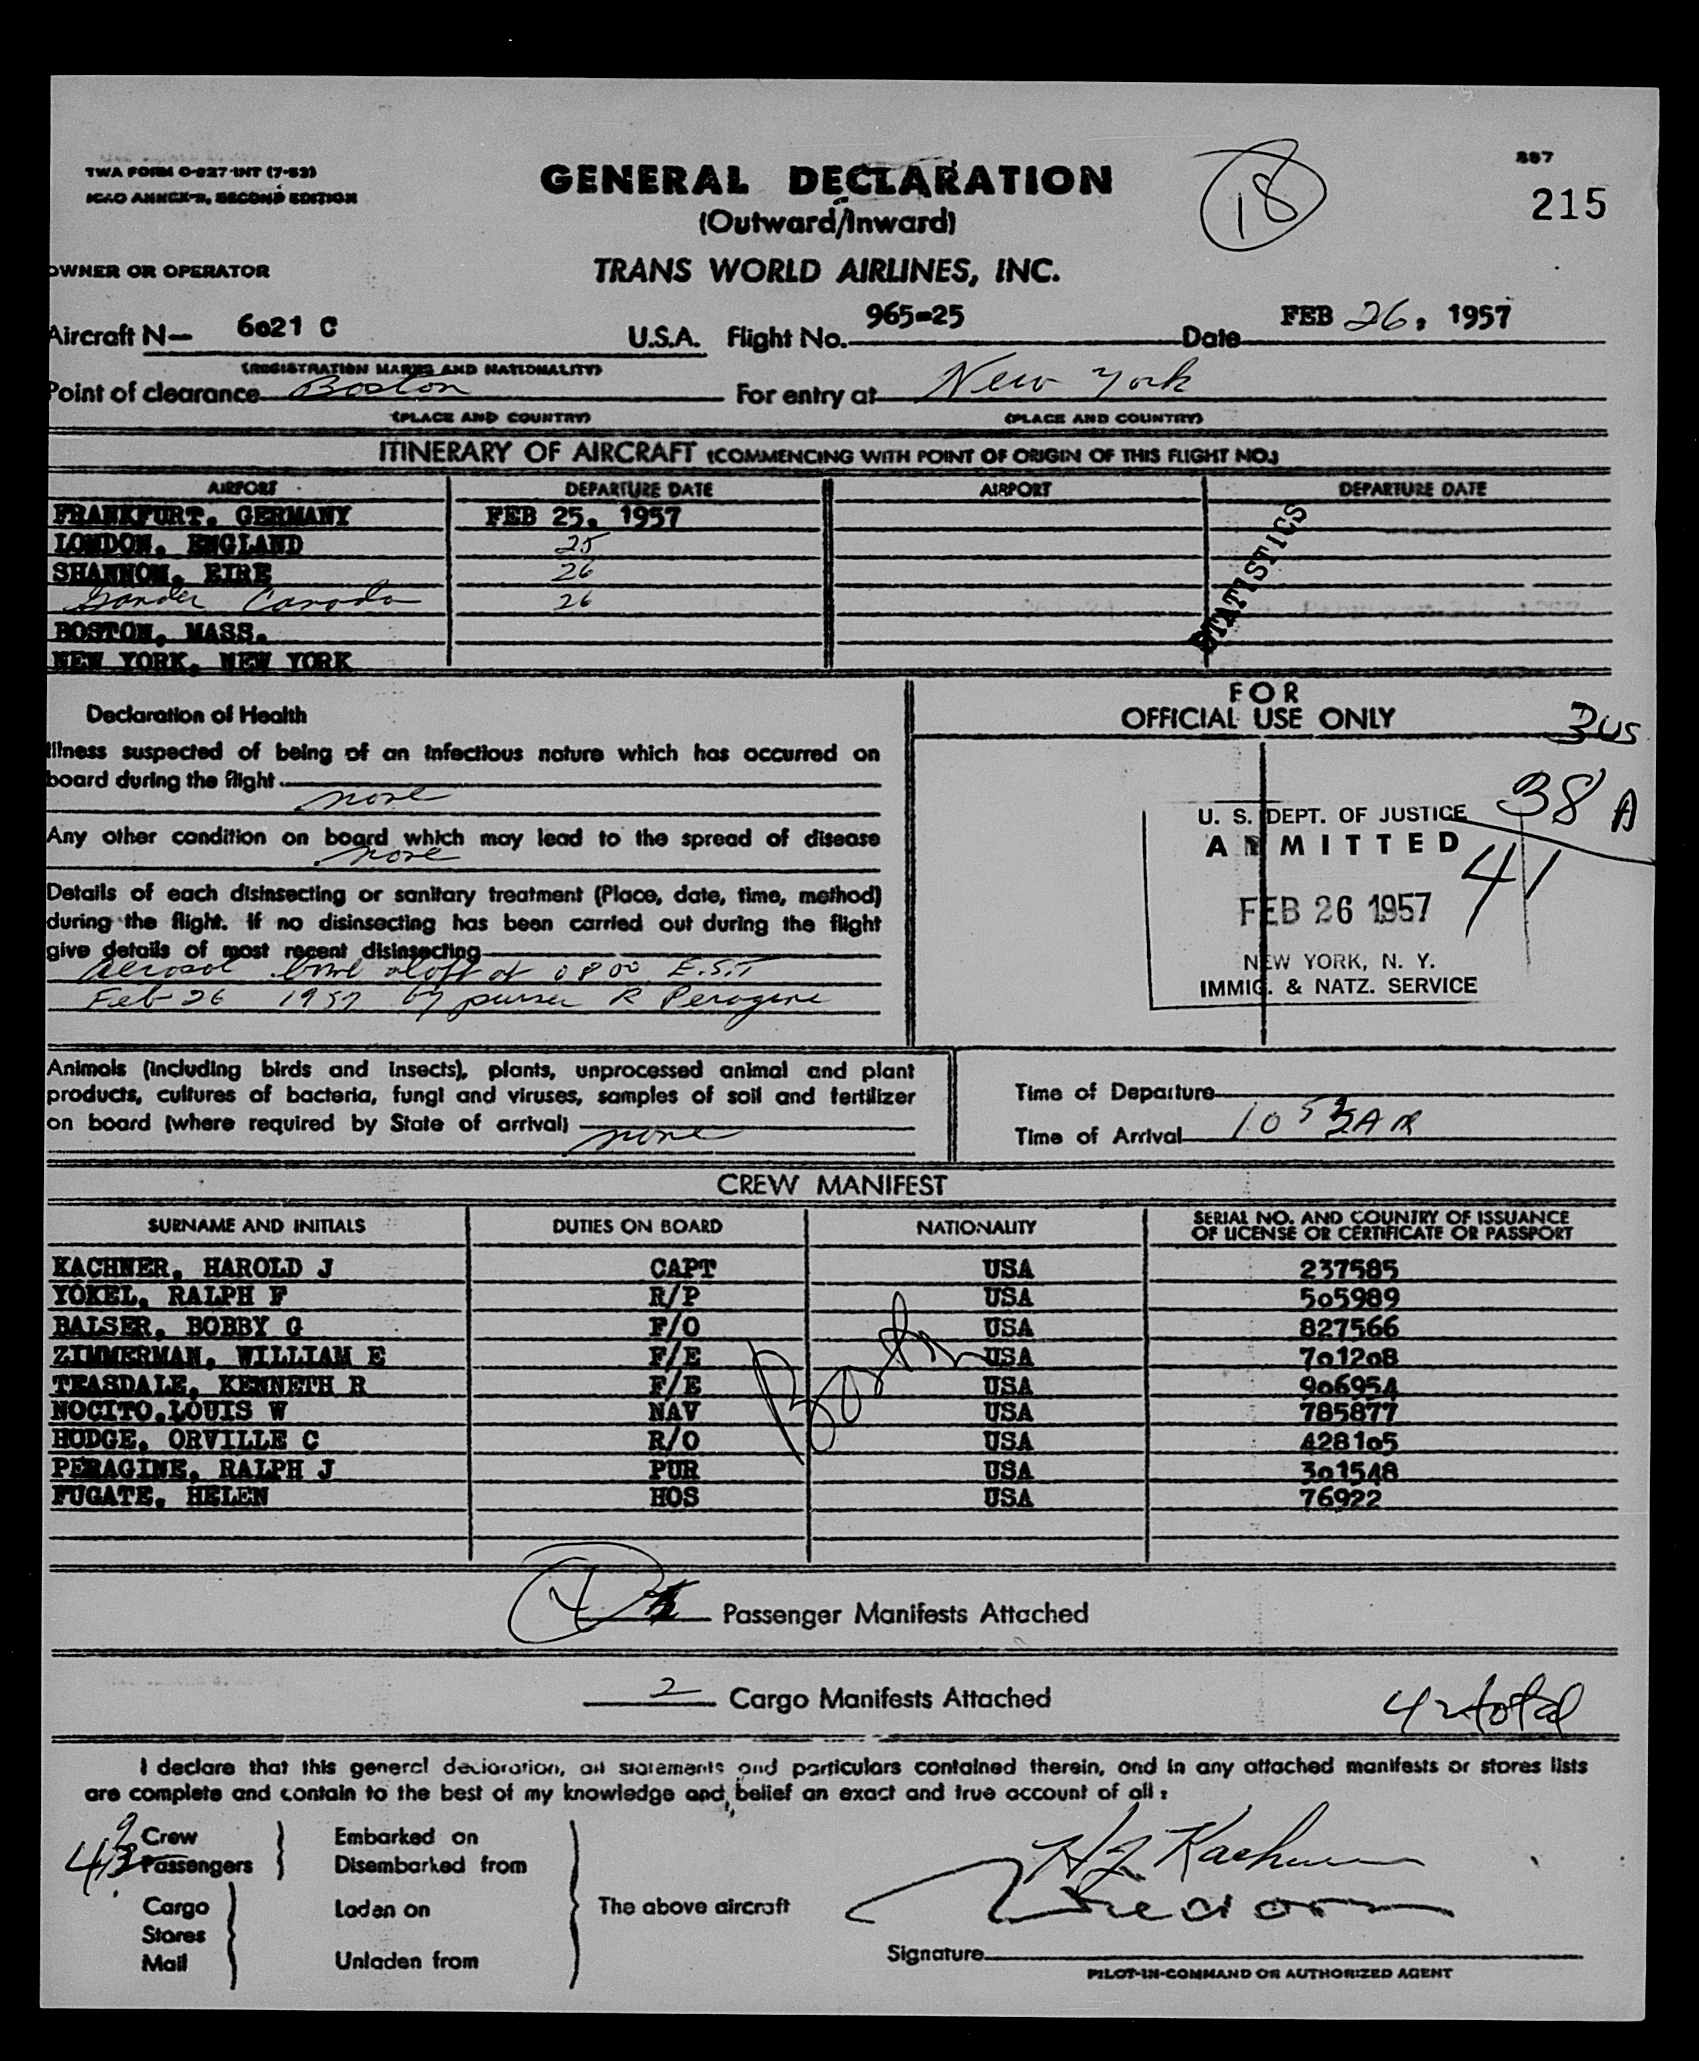 TWA FORM O-827-INT (7-53)
ICAO ANNEX-9, SECOND EDITION
GENERAL DECLARATION
(Outward/Inward)
18
887
215
OWNER OR OPERATOR
TRANS WORLD AIRLINES, INC.
Aircraft N— 6021 C U.S.A. Flight No. 965-25 Date FEB 26, 1957
(REGISTRATION MARKS AND NATIONALITY)
Point of clearance Boston For entry at New York
(PLACE AND COUNTRY) (PLACE AND COUNTRY)
ITINERARY OF AIRCRAFT (COMMENCING WITH POINT OF ORIGIN OF THIS FLIGHT NO.)
AIRPORT DEPARTURE DATE AIRPORT DEPARTURE DATE
FRANKFURT, GERMANY FEB 25, 1957
LONDON, ENGLAND 25
SHANNON, EIRE 26
Gander Canada 26
BOSTON, MASS.
NEW YORK, NEW YORK
STATISTICS
Declaration of Health
Illness suspected of being of an infectious nature which has occurred on
board during the flight
none
Any other condition on board which may lead to the spread of disease
none
Details of each disinsecting or sanitary treatment (Place, date, time, method)
during the flight. If no disinsecting has been carried out during the flight
give details of most recent disinsecting
Aerosol bomb aloft at 0800 E.S.T
Feb 26 1957 by purser R Peragine
FOR
OFFICIAL USE ONLY
3 US
38 A
41
U. S. DEPT. OF JUSTICE
ADMITTED
FEB 26 1957
NEW YORK, N. Y.
IMMIG. & NATZ. SERVICE
Animals (including birds and insects), plants, unprocessed animal and plant
products, cultures of bacteria, fungi and viruses, samples of soil and fertilizer
on board (where required by State of arrival)
none
Time of Departure
Time of Arrival
CREW MANIFEST
SURNAME AND INITIALS DUTIES ON BOARD NATIONALITY SERIAL NO. AND COUNTRY OF ISSUANCE
OF LICENSE OR CERTIFICATE OR PASSPORT
KACHNER, HAROLD J CAPT USA 237585
YOKEL, RALPH F R/P USA 505989
BALSER, BOBBY G F/O USA 827566
ZIMMERMAN, WILLIAM E F/E USA 701208
TEASDALE, KENNETH R F/E USA 906954
NOCITO, LOUIS W NAV USA 785877
HODGE, ORVILLE C R/O USA 428105
PERAGINE, RALPH J PUR USA 301548
FUGATE, HELEN HOS USA 76922
Boston
4 Passenger Manifests Attached
2 Cargo Manifests Attached
42 total
I declare that this general declaration, all statements and particulars contained therein, and in any attached manifests or stores lists
are complete and contain to the best of my knowledge and belief an exact and true account of all:
9 Crew Embarked on
Passengers Disembarked from
Cargo Laden on The above aircraft
Stores
Mail Unladen from
H J Kachner
Signature
PILOT-IN-COMMAND OR AUTHORIZED AGENT